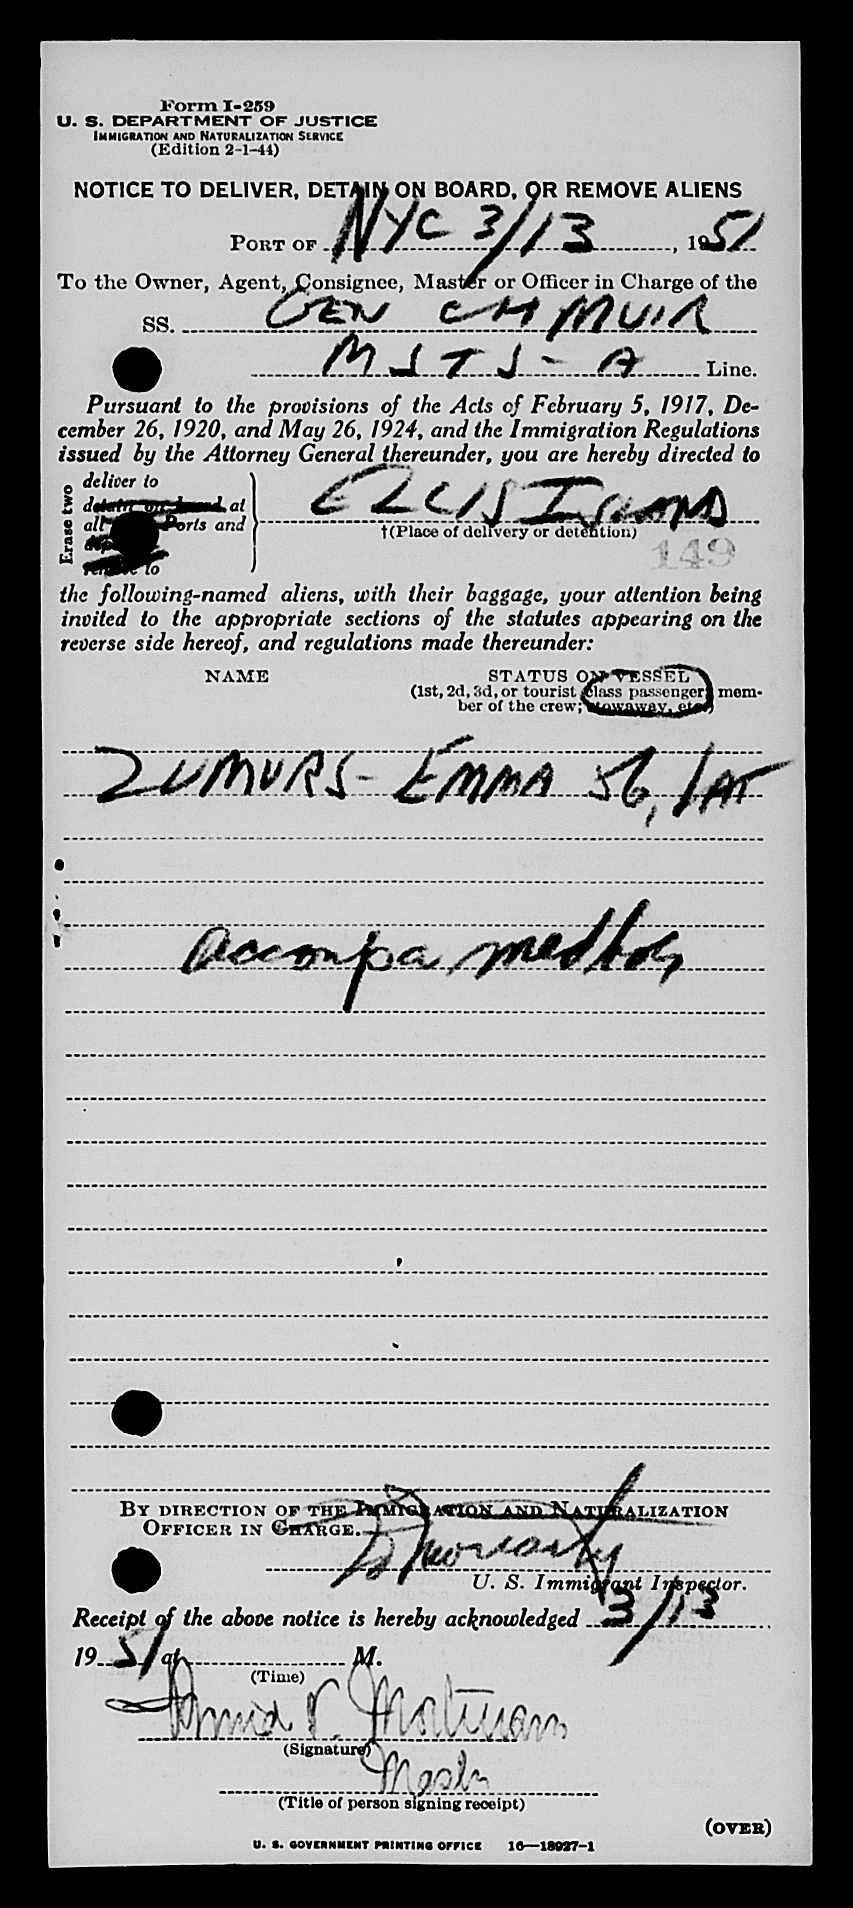 Form I-259
U. S. DEPARTMENT OF JUSTICE
IMMIGRATION AND NATURALIZATION SERVICE
(Edition 2-1-44)
NOTICE TO DELIVER, DETAIN ON BOARD, OR REMOVE ALIENS
PORT OF NYC 3/13, 1951
To the Owner, Agent, Consignee, Master or Officer in Charge of the
SS. GEN CH MUIR
MSTS-A Line.
Pursuant to the provisions of the Acts of February 5, 1917, De-
cember 26, 1920, and May 26, 1924, and the Immigration Regulations
issued by the Attorney General thereunder, you are hereby directed to
Erase two
deliver to
detain on board at
all Ports and
remove to
ELLIS ISLAND
†(Place of delivery or detention)
149
the following-named aliens, with their baggage, your attention being
invited to the appropriate sections of the statutes appearing on the
reverse side hereof, and regulations made thereunder:
NAME STATUS ON VESSEL
(1st, 2d, 3d, or tourist class passenger; mem-
ber of the crew; stowaway, etc.)
ZUMURS - EMMA 56, LAT
accompa med hos
BY DIRECTION OF THE IMMIGRATION AND NATURALIZATION
OFFICER IN CHARGE.
U. S. Immigrant Inspector.
Receipt of the above notice is hereby acknowledged 3/13
1951 at M.
(Time)
(Signature)
(Title of person signing receipt)
(OVER)
U. S. GOVERNMENT PRINTING OFFICE 16—18927-1